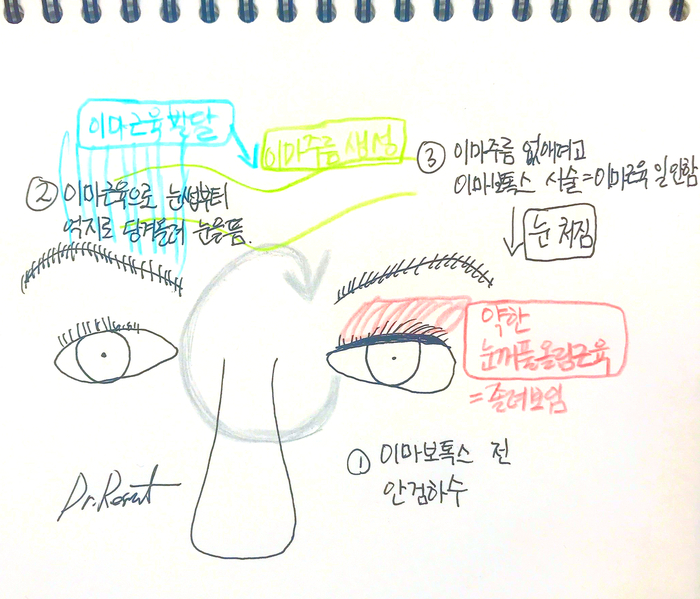 이마근육 발달
이마주름 생성
② 이마근육으로 눈썹부터
억지로 당겨올려 눈을뜸.
③ 이마주름 없애려고
이마보톡스 시술=이마근육 일안함
눈 처짐
약한
눈꺼풀올림근육
=졸려보임
① 이마보톡스 전
안검하수